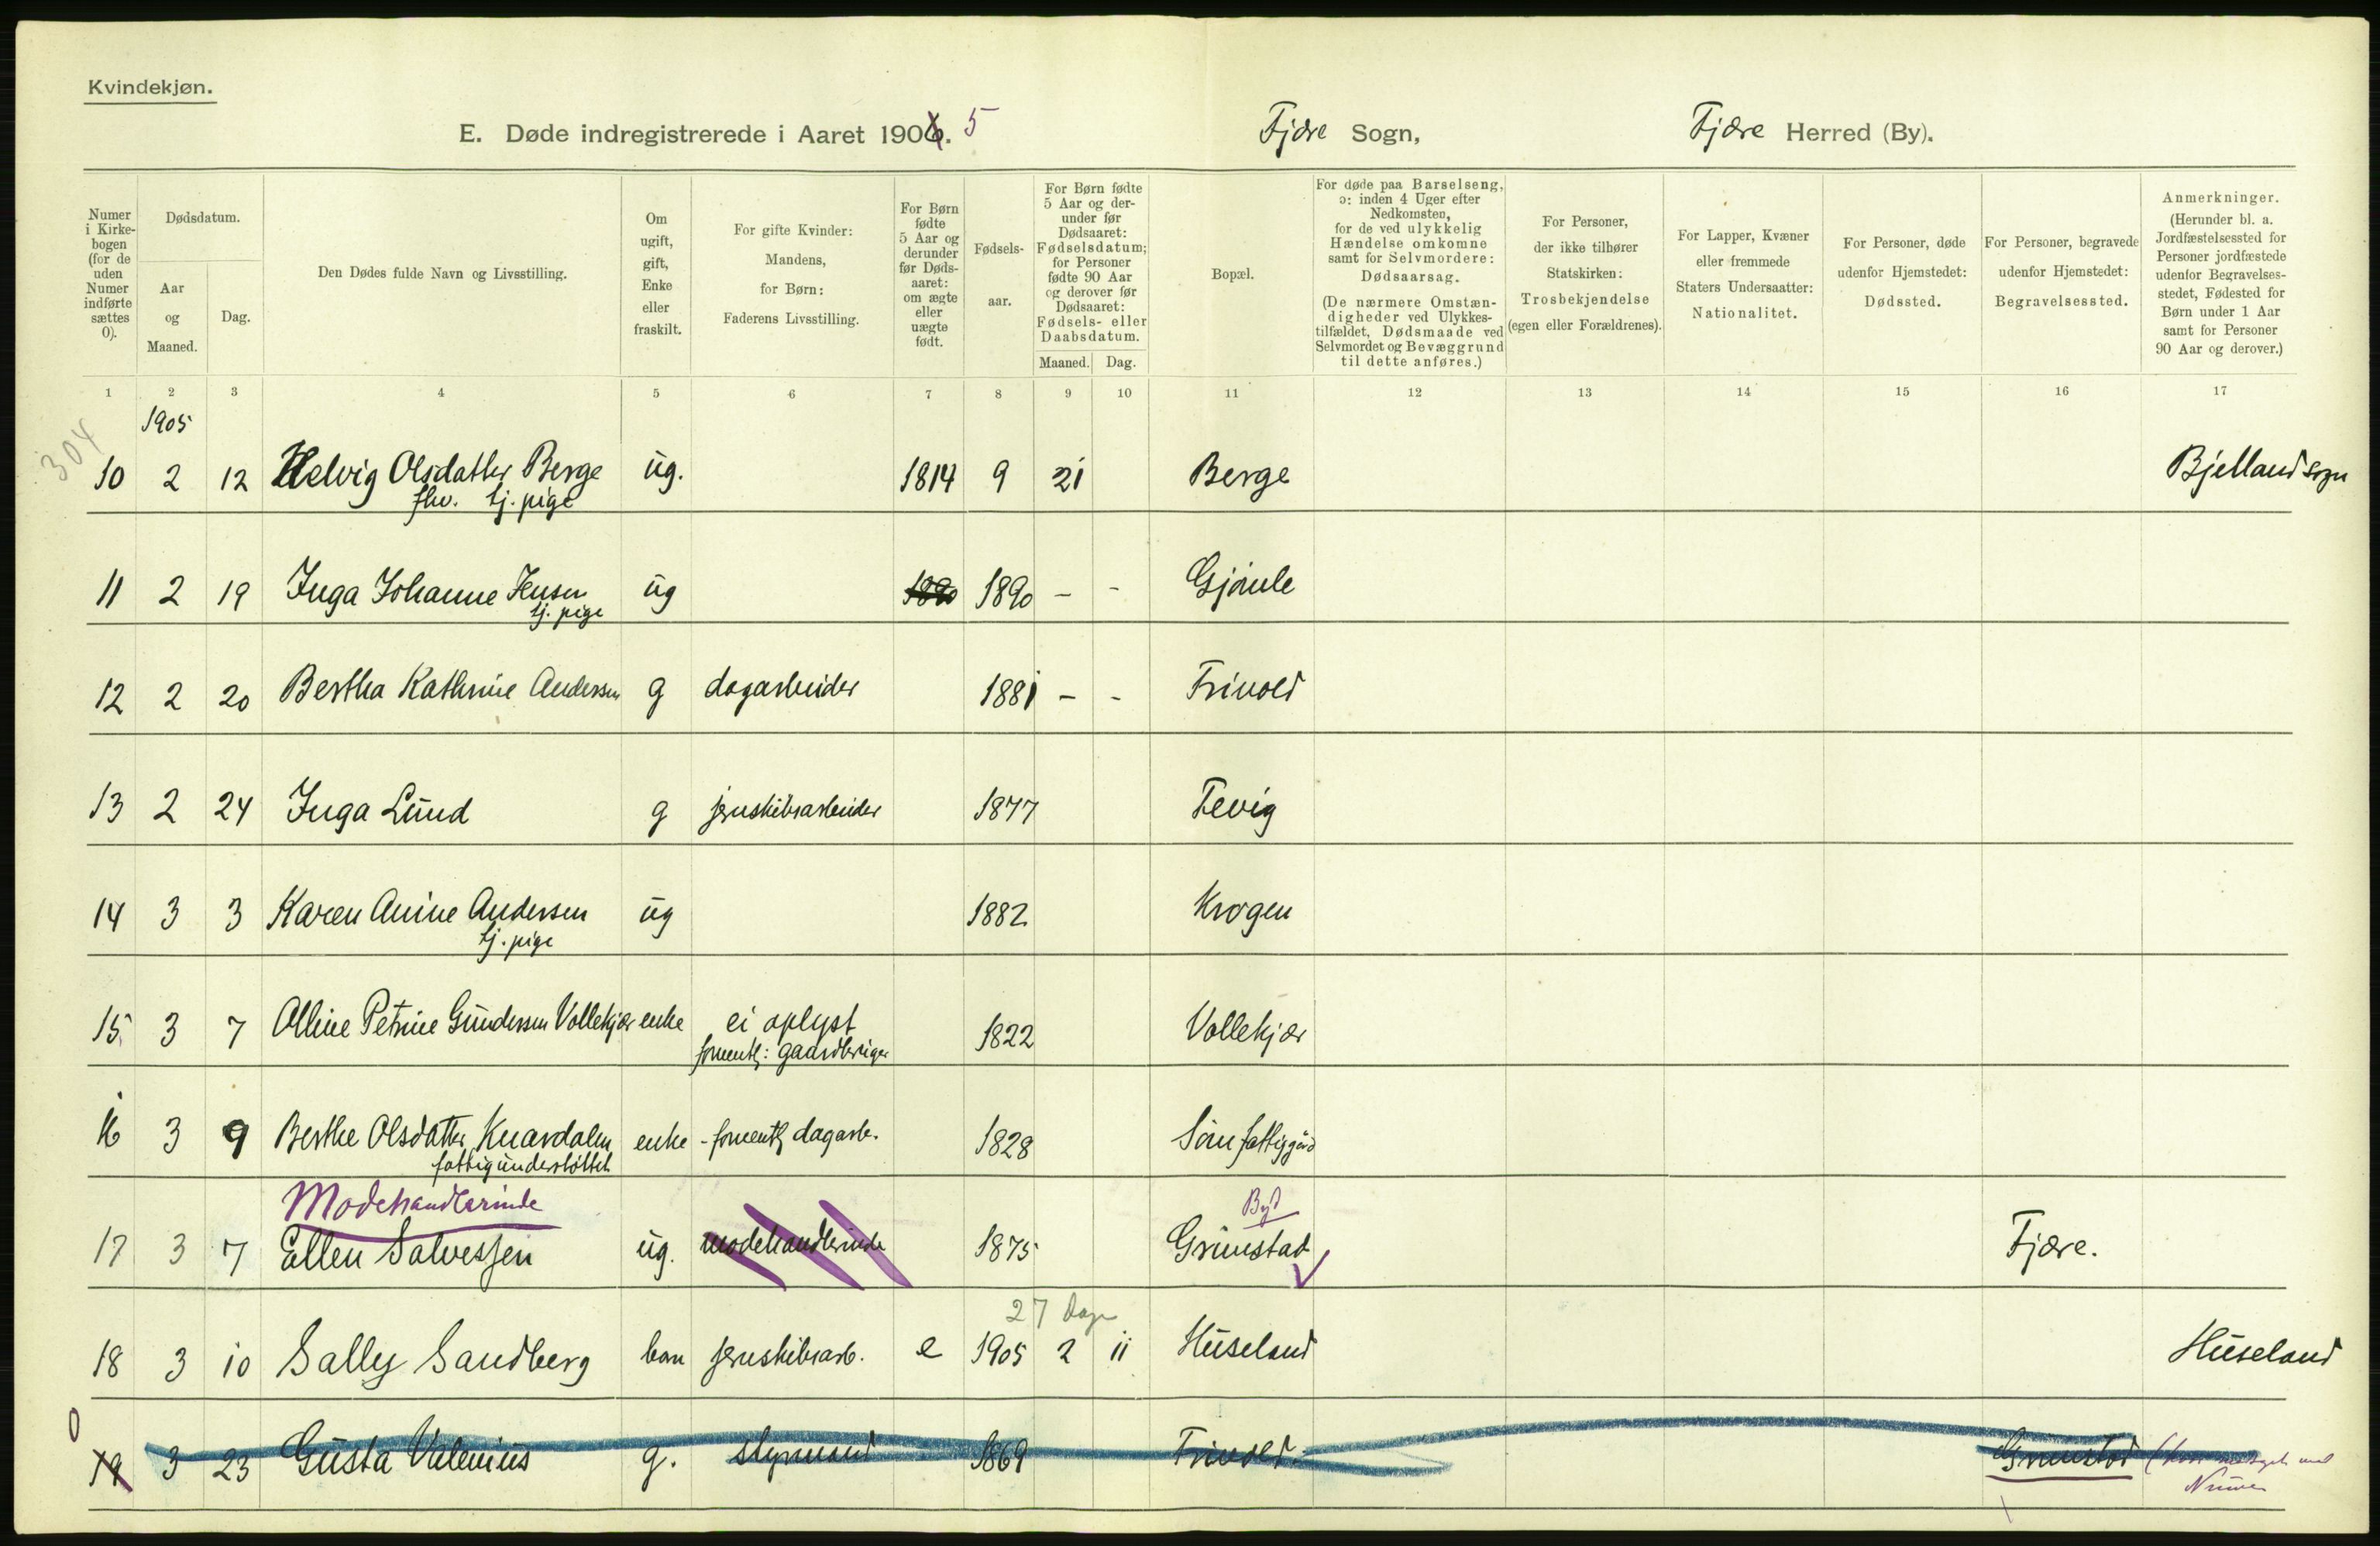 Kvindekjøn.
E. Døde indregistrerede i Aaret 1906. 5 Fjære Sogn, Fjære Herred (By).
Numer i Kirkebogen (for de uden Numer indførte sættes 0).
Dødsdatum.
Aar og Maaned.
Dag.
Den Dødes fulde Navn og Livsstilling.
Om ugift, gift, Enke eller fraskilt.
For gifte Kvinder: Mandens, for Børn: Faderens Livsstilling.
For Børn fødte 5 Aar og derunder før Dødsaaret: om ægte eller uægte født.
Fødselsaar.
For Børn fødte 5 Aar og derunder før Dødsaaret: Fødselsdatum; for Personer fødte 90 Aar og derover før Dødsaaret: Fødsels- eller Daabsdatum.
Maaned. Dag.
Bopæl.
For døde paa Barselseng, ɔ: inden 4 Uger efter Nedkomsten, for de ved ulykkelig Hændelse omkomne samt for Selvmordere: Dødsaarsag.
(De nærmere Omstændigheder ved Ulykkestilfældet, Dødsmaade ved Selvmordet og Bevæggrund til dette anføres.)
For Personer, der ikke tilhører Statskirken: Trosbekjendelse (egen eller Forældrenes).
For Lapper, Kvæner eller fremmede Staters Undersaatter: Nationalitet.
For Personer, døde udenfor Hjemstedet: Dødssted.
For Personer, begravede udenfor Hjemstedet: Begravelsessted.
Anmerkninger.
(Herunder bl. a. Jordfæstelsessted for Personer jordfæstede udenfor Begravelsesstedet, Fødested for Børn under 1 Aar samt for Personer 90 Aar og derover.)
1 2 3 4 5 6 7 8 9 10 11 12 13 14 15 16 17
304
1905
10 2 12 Helvig Olsdatter Berge ug. 1814 9 21 Berge Bjelland sogn
fhv. tj. pige
11 2 19 Inga Johanne Jensen ug 1890 1890 - - Gjømle
tj. pige
12 2 20 Bertha Kathrine Andersen g dagarbeider 1881 - - Frivold
13 2 24 Inga Lund g jernskibsarbeider 1877 Fevig
14 3 3 Karen Anine Andersen ug 1882 Krogen
tj. pige
15 3 7 Olline Petrine Gundersen Vollekjær enke ei oplyst 1822 Vollekjær
formentl: gaardbruger
16 3 9 Berthe Olsdatter Knardalen enke - formentl dagarb. 1828 Søm fattiggård
fattigunderstøttet
Modehandlerinde
Byd
17 3 7 Ellen Salvessen ug. modehandlerinde 1875 Grimstad Fjære.
27 Dage
18 3 10 Sally Sandberg barn jernskibsarb. e 1905 2 11 Huseland Huseland
0
19 3 23 Gusta Valenius g. styrmand 1869 Frivold. Grimstad